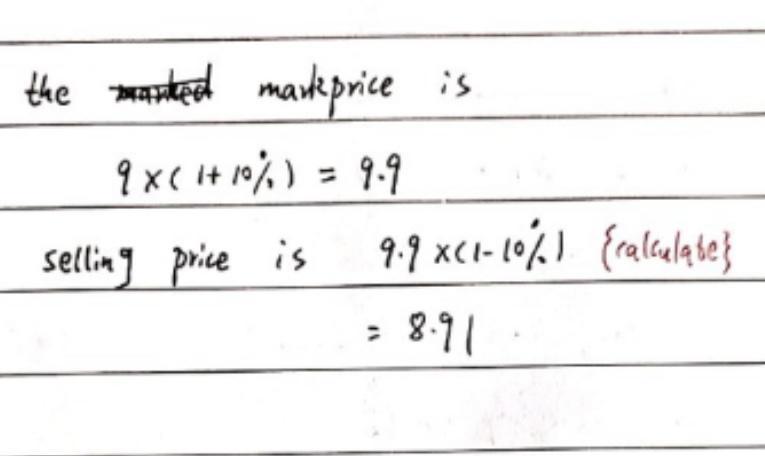 the markprice is
9 × ( 1 + 10% ) = 9.9
selling price is 9.9 × ( 1 - 10% ) {calculate}
= 8.91